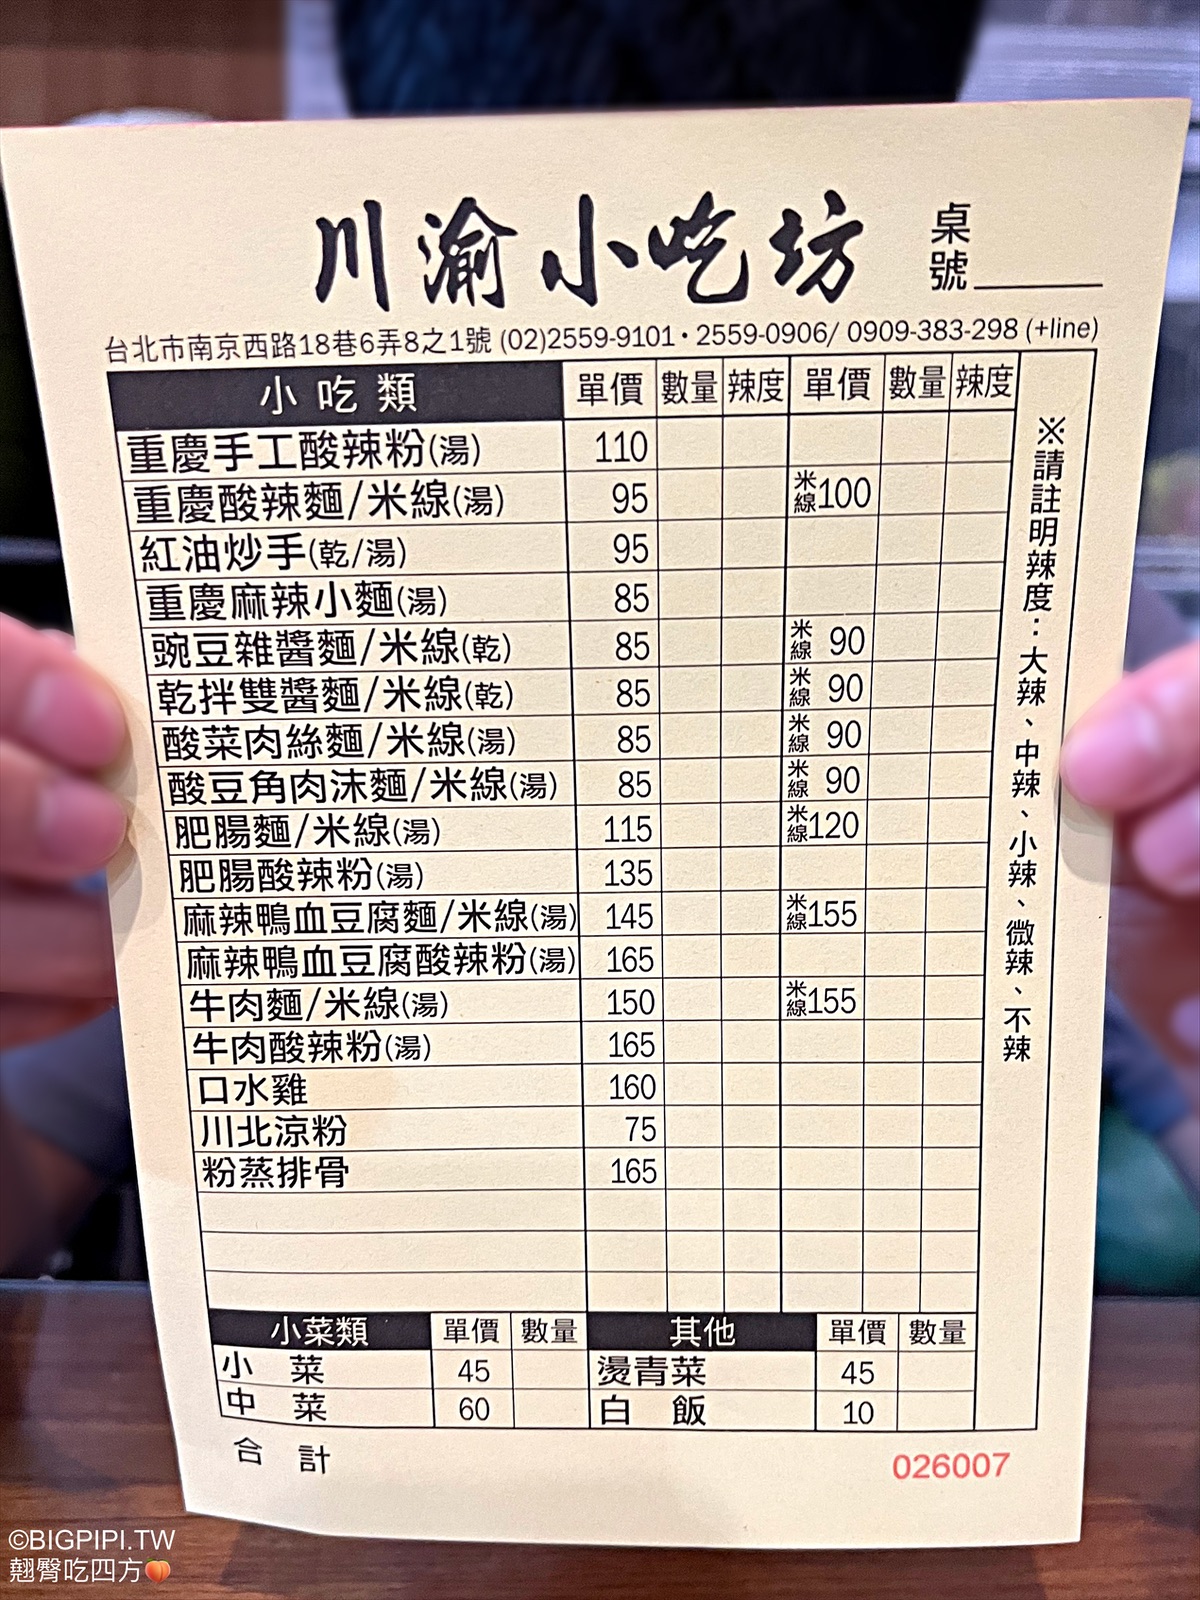 川渝小吃坊 桌號
台北市南京西路18巷6弄8之1號 (02)2559-9101・2559-0906/ 0909-383-298 (+line)
小吃類 單價 數量 辣度 單價 數量 辣度
重慶手工酸辣粉(湯) 110
重慶酸辣麵/米線(湯) 95 米線100
紅油炒手(乾/湯) 95
重慶麻辣小麵(湯) 85
豌豆雜醬麵/米線(乾) 85 米線 90
乾拌雙醬麵/米線(乾) 85 米線 90
酸菜肉絲麵/米線(湯) 85 米線 90
酸豆角肉沫麵/米線(湯) 85 米線 90
肥腸麵/米線(湯) 115 米線120
肥腸酸辣粉(湯) 135
麻辣鴨血豆腐麵/米線(湯) 145 米線155
麻辣鴨血豆腐酸辣粉(湯) 165
牛肉麵/米線(湯) 150 米線155
牛肉酸辣粉(湯) 165
口水雞 160
川北涼粉 75
粉蒸排骨 165
※請註明辣度：大辣、中辣、小辣、微辣、不辣
小菜類 單價 數量 其他 單價 數量
小 菜 45 燙青菜 45
中 菜 60 白 飯 10
合 計 026007
©BIGPIPI.TW
翹臀吃四方🍑